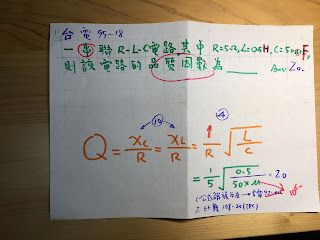 台電 95-18
一串聯R-L-C電路其中 R=5Ω, L=0.5H, C=50μF,
則該電路的品質因數為____ Ans: 20.
Q = XC/R = XL/R = 1/R √(L/C)
= 1/5 √(0.5/50×μ) = 20
10⁻⁶